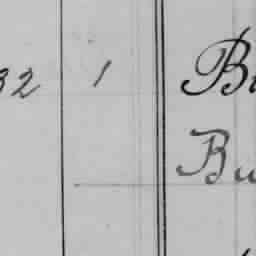 32 1 B
Bu